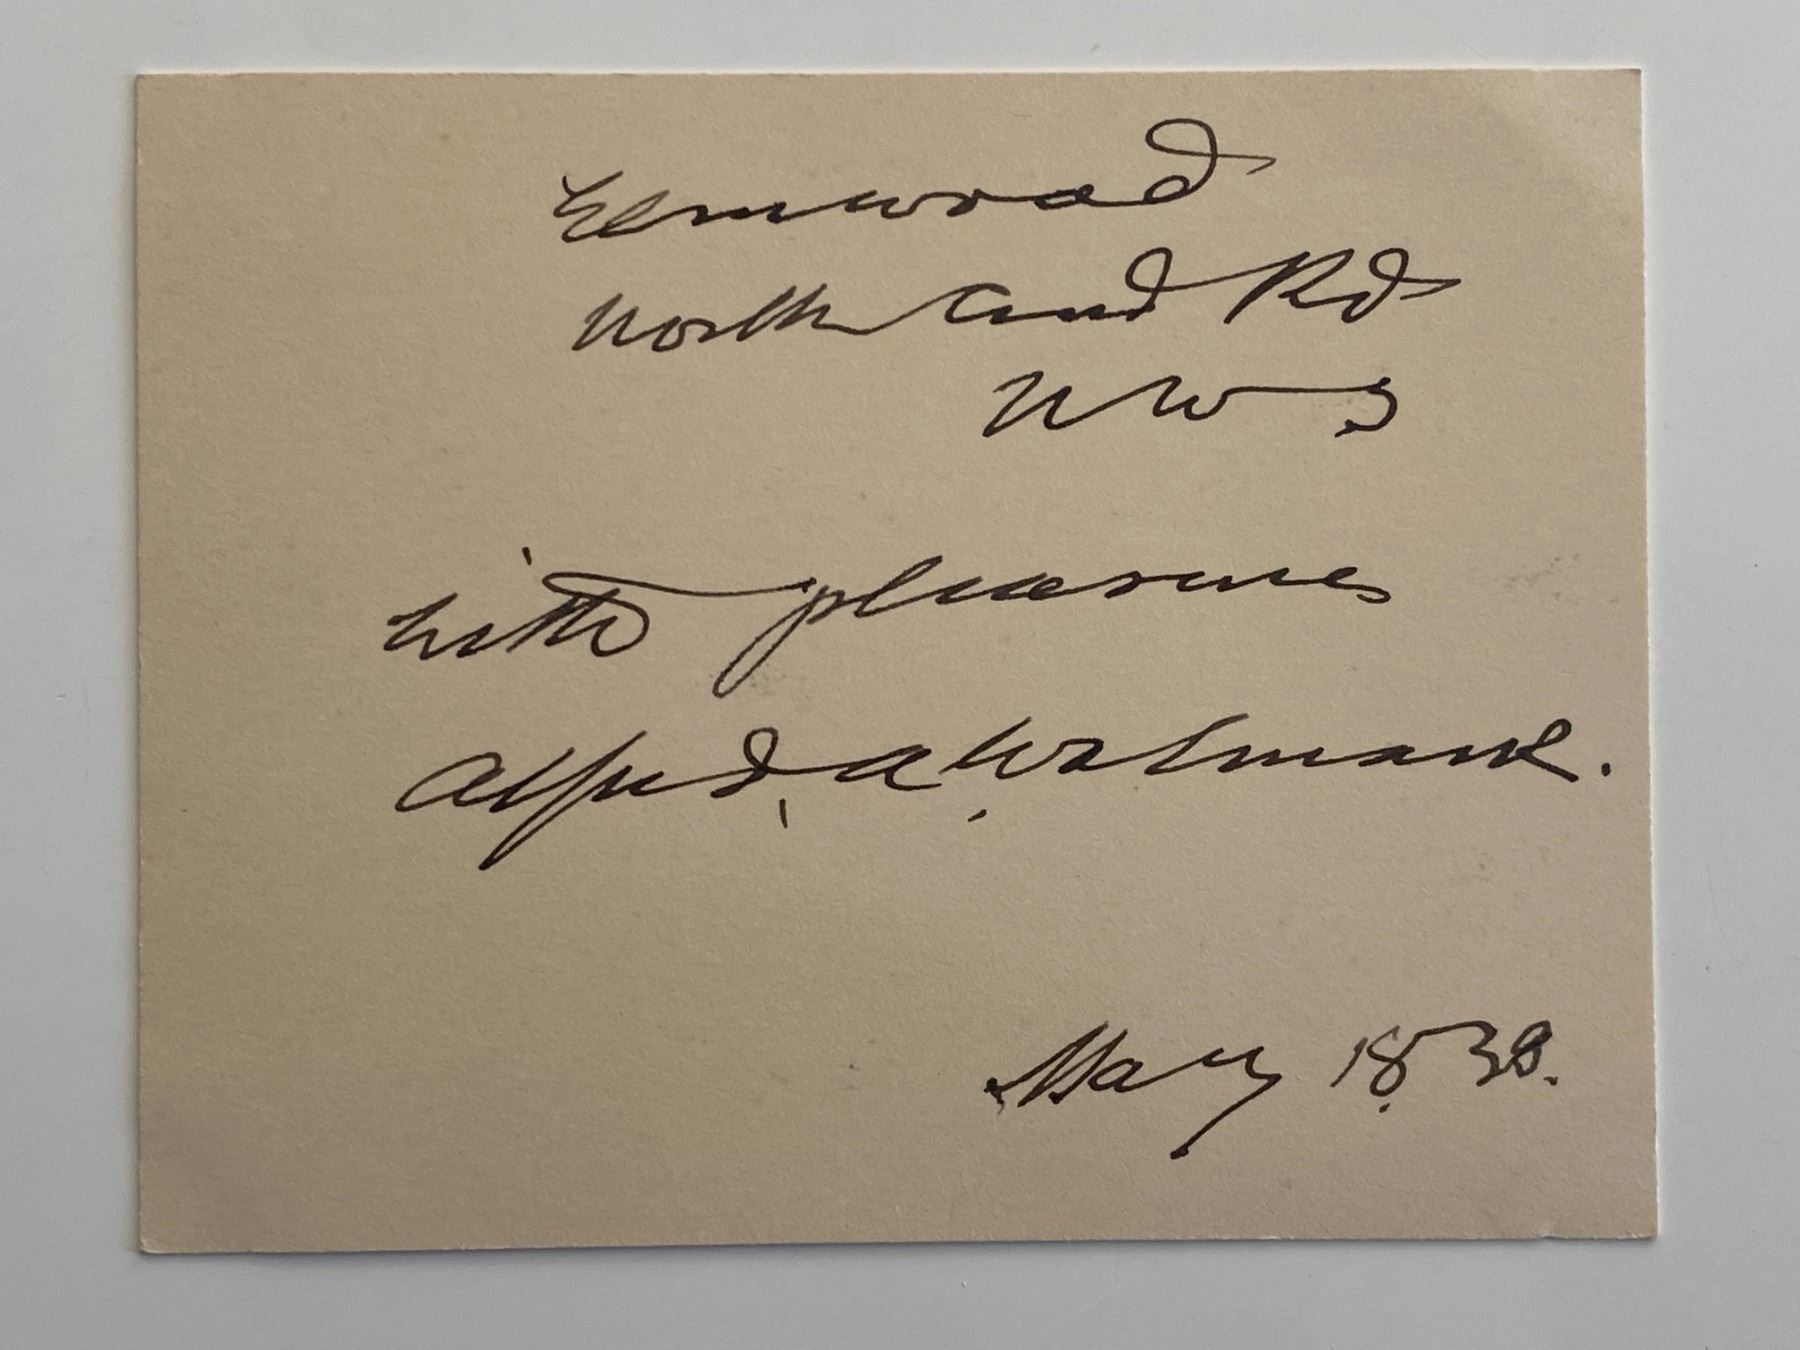 Elmwood
North End Rd
N W 3
with pleasure
Alfred, A. Wolmark.
May 18. 38.